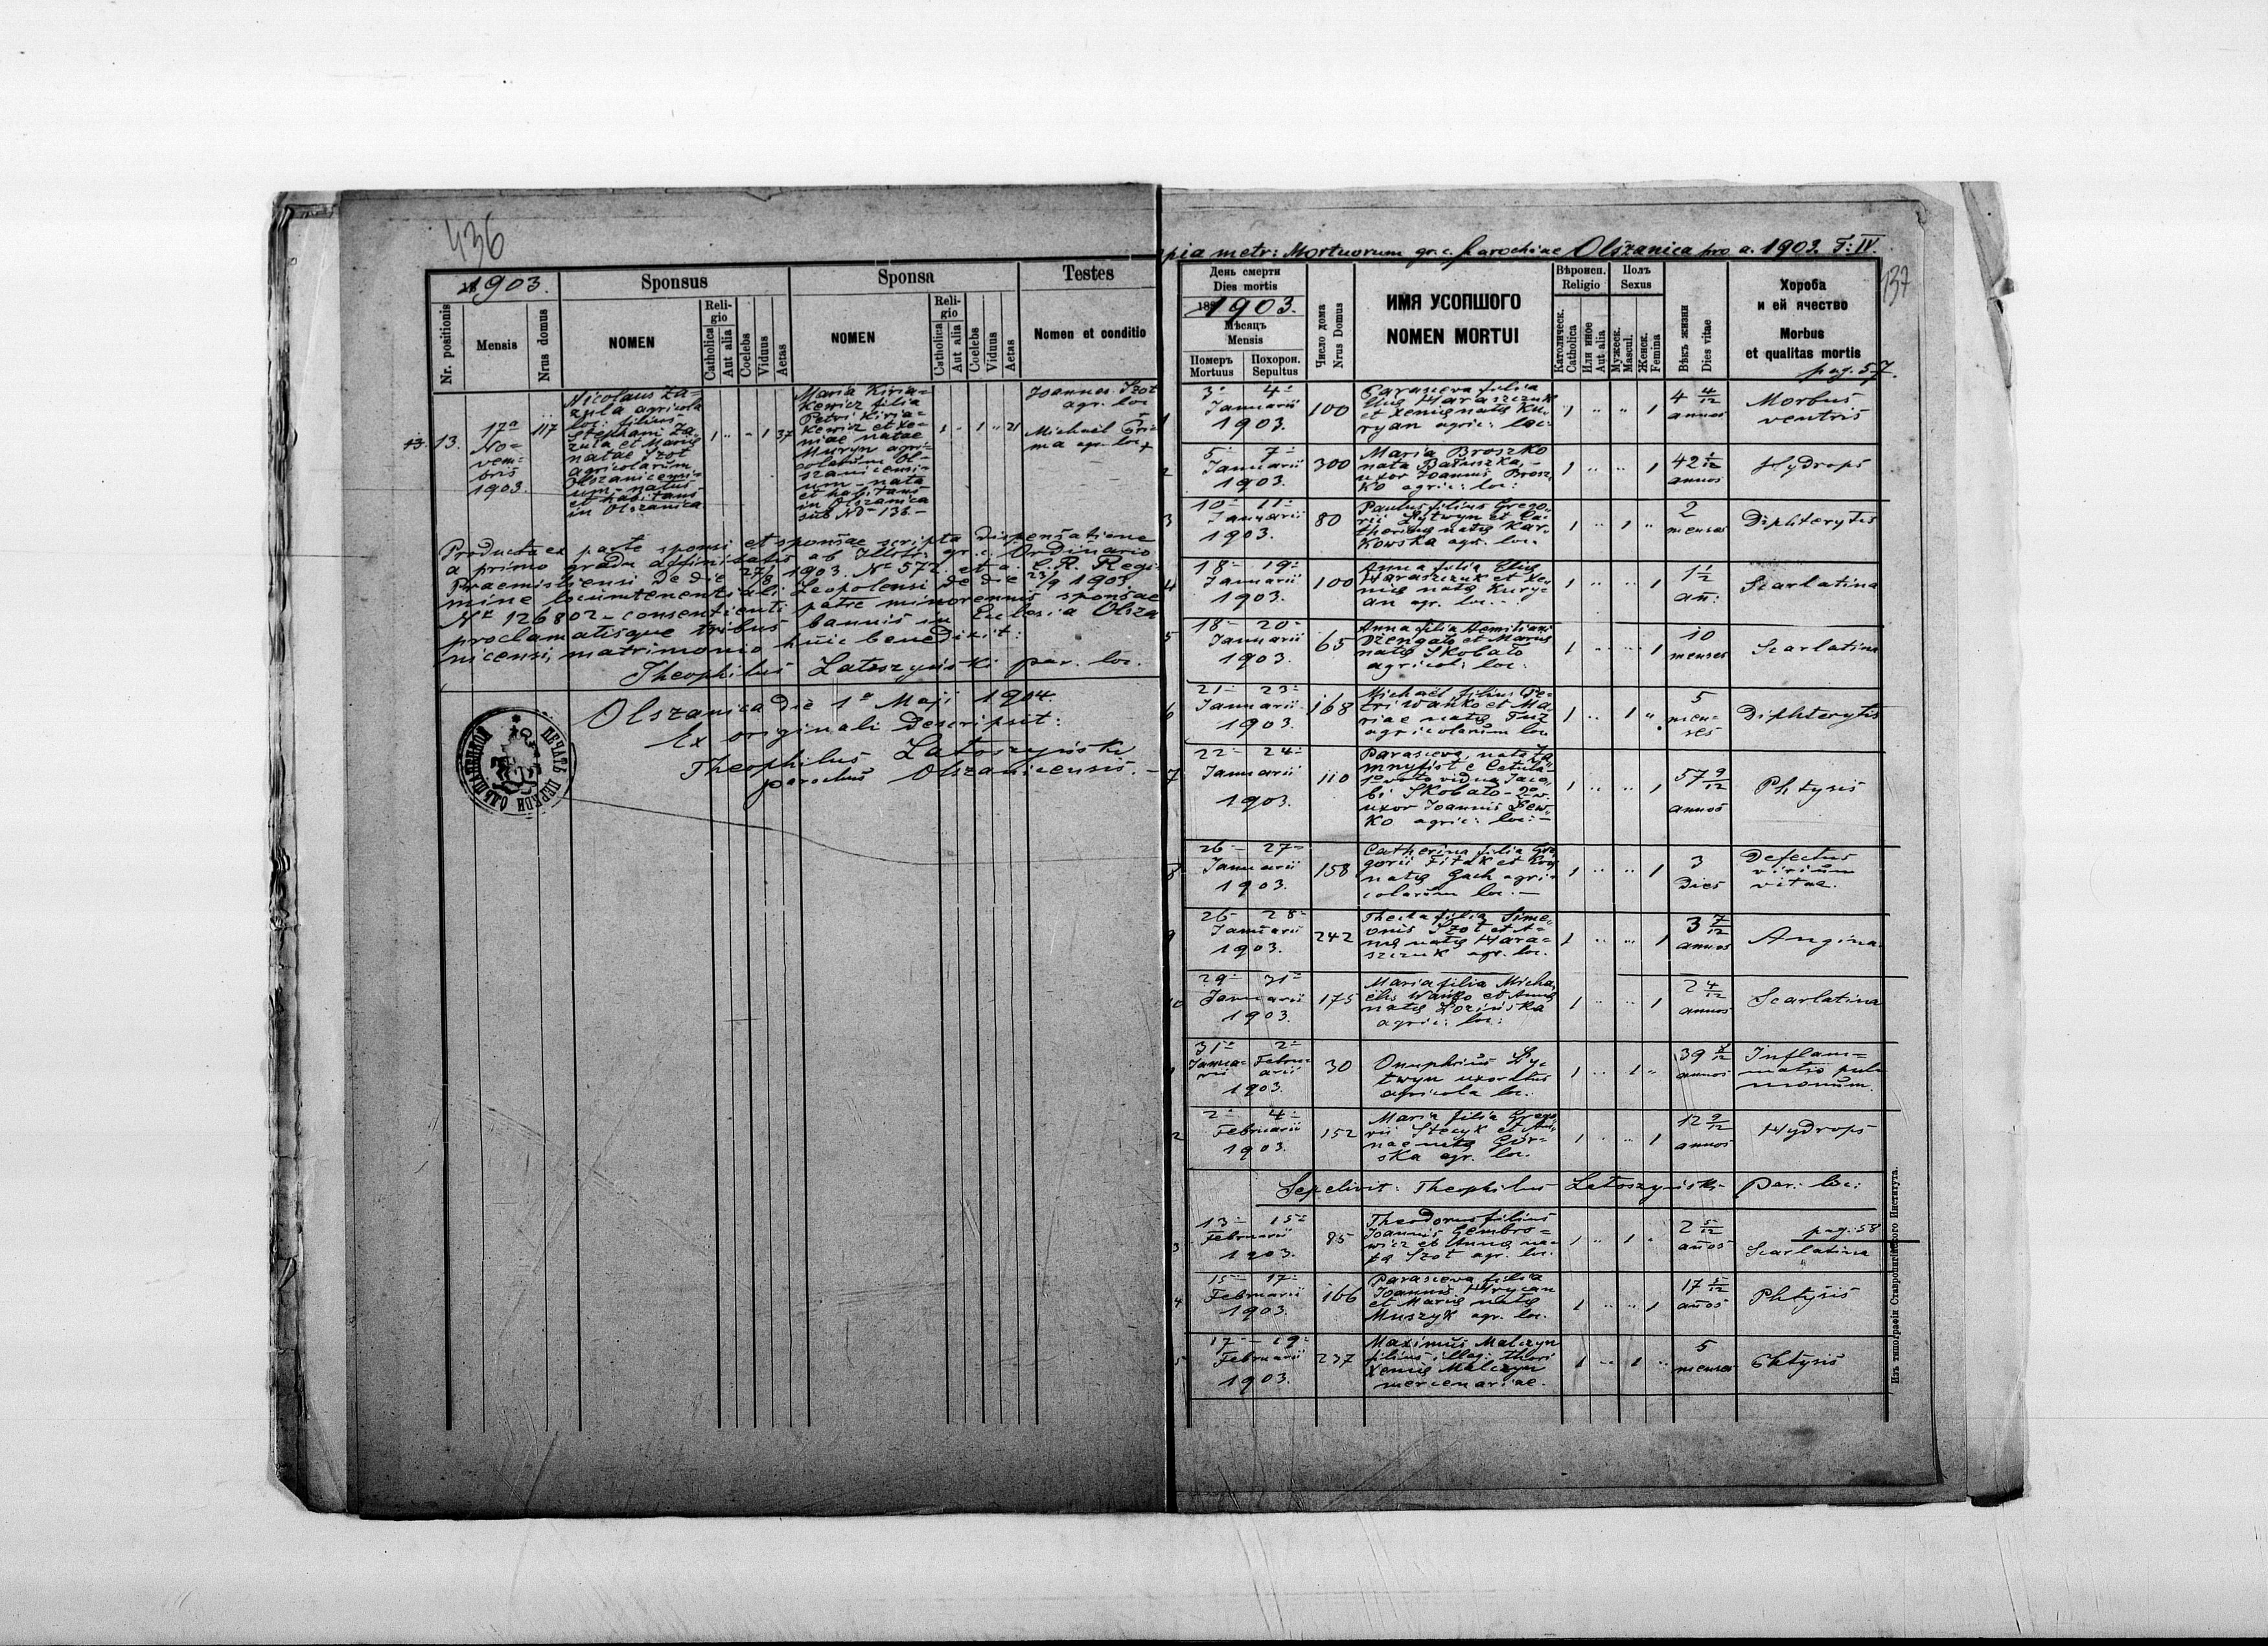 436
1903.
Sponsus
Sponsa
Testes
Nr. positionis
Mensis
Nrus domus
NOMEN
Religio
Catholica
Aut alia
Coelebs
Viduus
Aetas
NOMEN
Religio
Catholica
Aut alia
Coelebs
Viduus
Aetas
Nomen et conditio
13.
13.
17a
No=
vem=
bris
1903.
117
Nicolaus Za=
zula agricola
loc: filius
Stephani Za
zula et Mariae
natae Szot
agricolarum
Olszanicensi=
um - natus
et habitans
in Olszanica
1
"
"
1
37
Maria Kirja=
kewicz filia
Petri Kirja=
kewicz et Xe=
niae natae
Muryn agri=
colarum Ol=
szanicensi=
um - nata
et habitans
in Olszanica
sub No 136.-
1
"
1
"
21
Joannes Szot
agr. loc
Michael Pri=
ma agr. loc +
Producta ex parte sponsi et sponsae scripta dispensatione
a primo gradu affinitatis ab Illstr: gr. c. Ordinario
Praemisliensi de die 27/8 1903. No 572 et a C. R. Regi=
mine locumtenentiali Leopoliensi de die 23/9 1903
No 126802 - consentienti patre minorennis sponsae
proclamatisque tribus bannis in Ecclesia Olsza
nicensi, matrimonio huic benedixit:
Theophilus Latoszyński par. loc.
Olszanica die 1a Maji 1904.
Ex originali descripsit:
Theophilus Latoszyński
parochus Olszanicensis. -
ПЕЧАТЬ ЦЕРКОИ
pia metr: Mortuorum gr. c. Parochiae Olszanica pro a. 1903. T: IV.
137
День смерти
Dies mortis
1903.
Мѣсяцъ
Mensis
Померъ
Mortuus
Похорон.
Sepultus
Число дома
Nrus Domus
ИМЯ УСОПШОГО
NOMEN MORTUI
Вѣроисп.
Religio
Католическ.
Catholica
Или иное
Aut alia
Полъ
Sexus
Мужеск.
Mascul.
Женск.
Femina
Вѣкъ жизни
Dies vitae
Хороба
и ей ячество
Morbus
et qualitas mortis
pag. 57.
1
3- 4-
Januarii
1903.
100
Parasceva filia
Eliae Haraszczuk
et Xeniae natae Ku=
ryan agric: loc:
1 " " 1
4 4/12
annos
Morbus
ventris
2
5- 7-
Januarii
1903.
300
Maria Broszko
nata Batuszka,
uxor Joannis Brosz
ko agric: loc:
1 " " 1
42 1/12
annos
Hydrops
3
10- 11-
Januarii
1903.
80
Paulus filius Grego=
rii Lytwyn et Ca=
therinae natae Kar=
kowska agr. loc.
1 " 1 "
2
menses
Diphterytis
4
18- 19-
Januarii
1903.
100
Anna filia Eliae
Haraszczuk et Xe=
niae natae Kury=
an agr. loc.
1 " " 1
1 1/2
an:
Scarlatina
5
18- 20-
Januarii
1903.
65
Anna filia Aemiliani
Dżengało et Mariae
natae Skobało
agricol: loc:
1 " " 1
10
menses
Scarlatina
6
21- 23-
Januarii
1903.
168
Michael filius Pe=
tri Wańko et Ma=
riae natae Tuz
agricolarum loc
1 " 1 "
5
men=
ses
Diphterytis
7
22- 24-
Januarii
1903.
110
1o voto vidua Jaco=
bi Skobało - 2o v.
uxor Joannis Lew=
ko agric: loc: -
1 " " 1
57 9/12
annos
Phtysis
8
26- 27-
Januarii
1903.
158
Catherina filia Gre
gorii Fitak et
natae Gach agri=
colarum loc. -
1 " " 1
3
dies
Defectus
virium
vitae.
9
26- 28-
Januarii
1903.
242
Thecla filia Sime=
onis Szot et A=
nnae natae Hara=
szczuk agr. loc.
1 " " 1
3 7/12
annos
Angina.
10
29- 31-
Januarii
1903.
175
Maria filia Micha
elis Wańko et Annae
natae Łozińska
agric: loc:
1 " " 1
2 4/12
annos
Scarlatina
1
31- 2-
Janua=
rii
Febru=
arii
1903.
30
Onuphrius Ly=
twyn uxoratus
agricola loc.
1 " 1 "
39 8/12
annos
Inflam=
matio pul
monum.
2
2- 4-
Februarii
1903.
152
Maria filia Grego
rii Stecyk et An=
nae natae Gór=
ska agr. loc.
1 " " 1
12 9/12
annos
Hydrops
Sepelivit: Theophilus Latoszyński Par: loc:
3
13- 15-
Februarii
1903.
85
Theodorus filius
Joannis Gembro=
wicz et Annae na=
tae Szot agr. loc.
1 " 1 "
2 5/12
anos
pag. 58
Scarlatina
4
15- 17-
Februarii
1903.
166
Parasceva filia
Joannis Hrycan
et Mariae natae
Muszyk agr. loc.
1 " " 1
17 5/12
anos
Phtysis
5
17- 19-
Februarii
1903.
237
Maximus Malczyn
filius illeg: thori
Xeniae Malczyn
mercenariae.
1 " 1 "
5
menses
Phtysis
Изъ типографіи Ставропигійского Института.